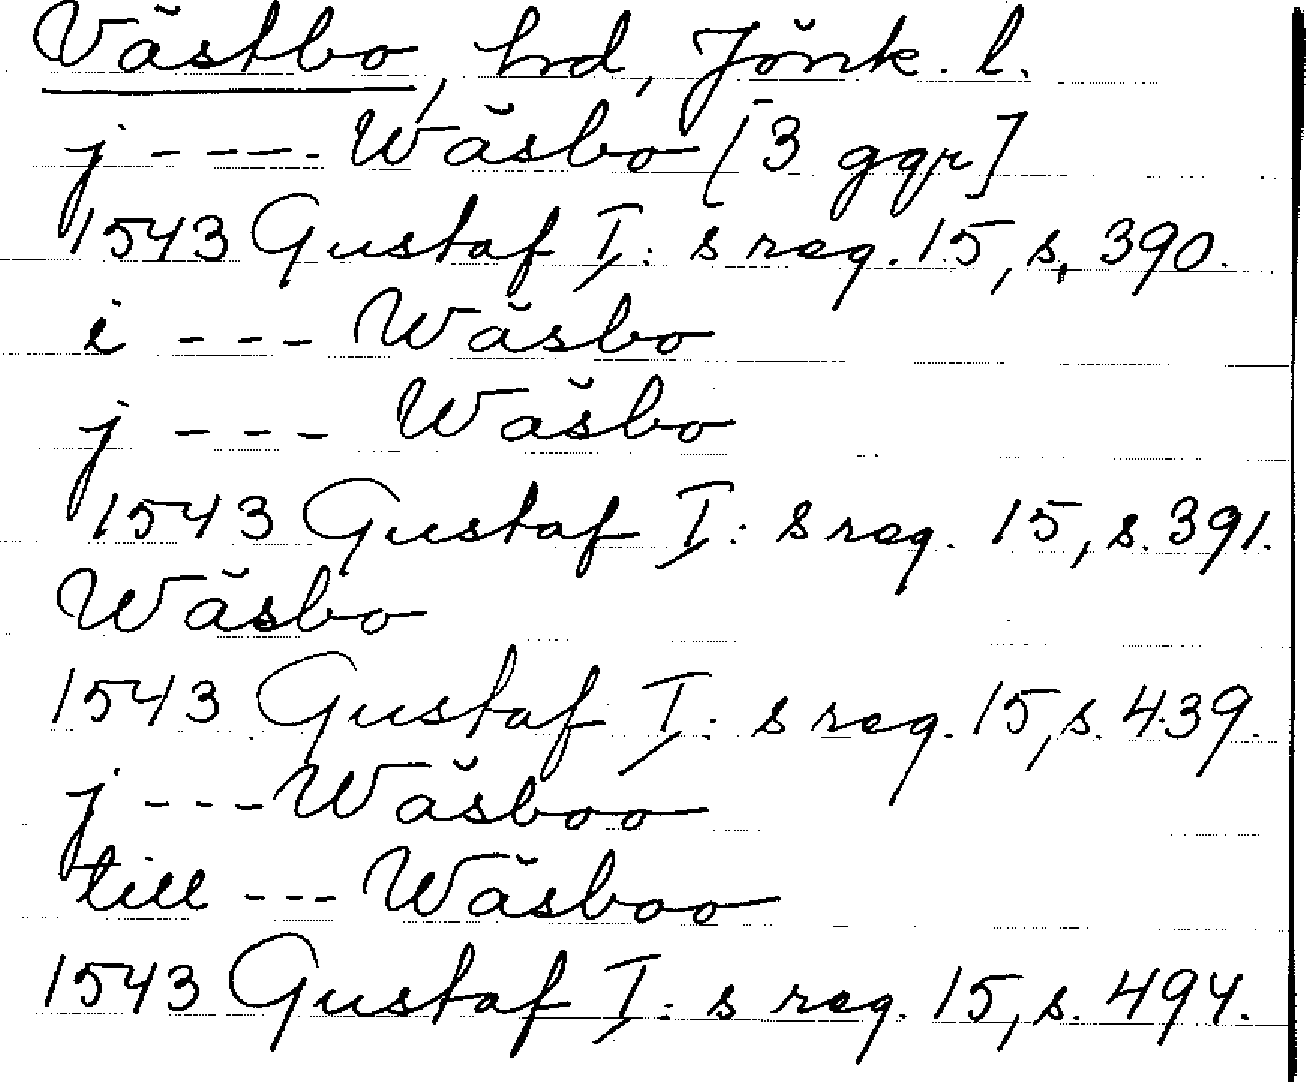 Västbo, hrd, Jönk. l.
j ---- Wäsbo [3 ggr]
1543 Gustaf I: s reg. 15, s. 390.
i --- Wäsbo
j --- Wäsbo
1543 Gustaf I: s reg. 15, s. 391.
Wäsbo
1543 Gustaf I: s reg. 15, s. 439.
j --- Wäsboo
till --- Wäsboo
1543 Gustaf I: s reg. 15, s. 494.